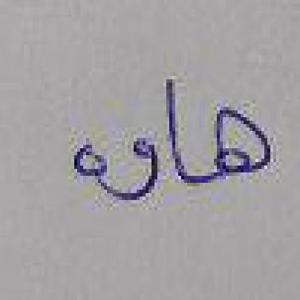 هاوه